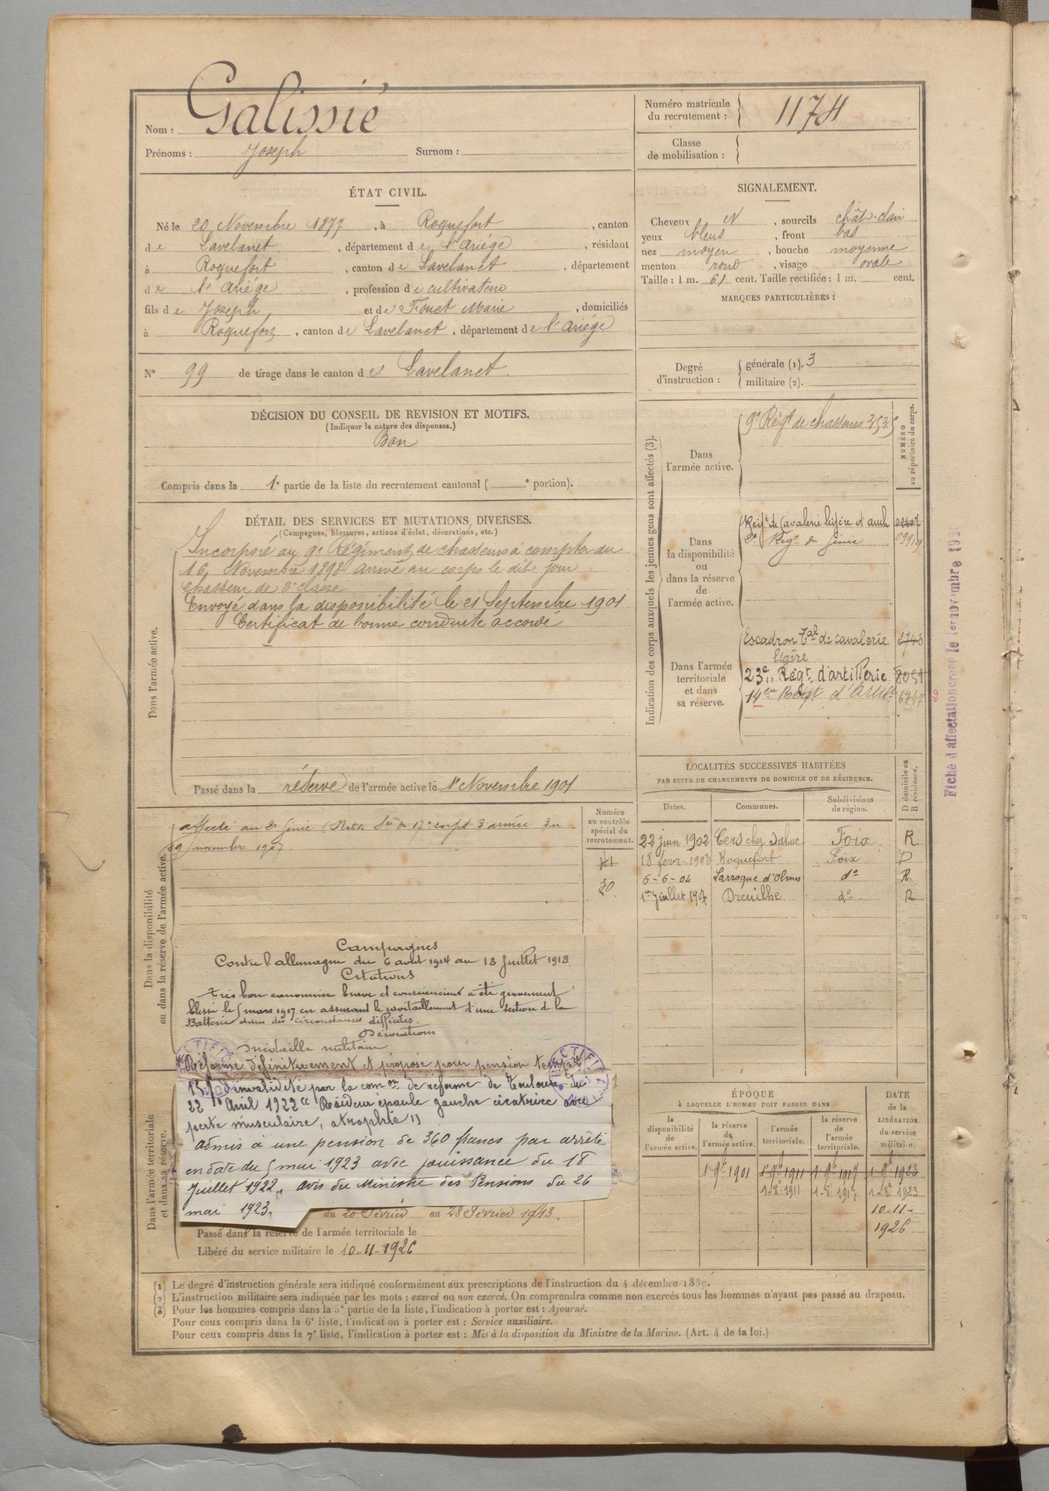 Nom : Galissié
Prénoms : Joseph Surnom :
ÉTAT CIVIL.
Né le 20 Novembre 1877, à Roquefort, canton
de Lavelanet, département de l'Ariége, résidant
à Roquefort, canton de Lavelanet, département
de l'Ariége, profession de cultivateur
fils de Joseph et de Fouet Marie, domiciliés
à Roquefort, canton de Lavelanet, département de l'Ariége
N° 99 de tirage dans le canton de Lavelanet.
DÉCISION DU CONSEIL DE REVISION ET MOTIFS.
(Indiquer la nature des dispenses.)
Bon
Compris dans la 1e partie de la liste du recrutement cantonal ( e portion).
DÉTAIL DES SERVICES ET MUTATIONS DIVERSES.
(Campagnes, blessures, actions d'éclat, décorations, etc.)
Dans l'armée active.
Incorporé au 9e Régiment de chasseurs à compter du
16 Novembre 1898 arrivé au corps le dit jour
chasseur de 2e classe
Envoyé dans la disponibilité le 21 Septembre 1901
Certificat de bonne conduite accordé
Passé dans la réserve de l'armée active le 1er Novembre 1901
Dans la disponibilité
ou dans la réserve de l'armée active.
affecté au 2e Génie
novembre 1907
Numéro
au contrôle
spécial du
recrutement.
30
Campagnes
Contre l'allemagne du 6 août 1914 au 18 Juillet 1918
Citations
très bon canonnier brave et consciencieux a été gravement
blessé le 5 mars 1917 en assurant le ravitaillement d'une section de la
Batterie dans des circonstances difficiles.
Décorations
Médaille militaire
Réformé définitivement et proposé pour pension temp
15 % d'invalidité par la comon de réforme de Toulouse du
22 Avril 1922 "Raideur épaule gauche cicatrice avec
perte musculaire, atrophie"
Admis à une pension de 360 francs par arrêté
en date du 5 mai 1923 avec jouissance du 18
Juillet 1922. avis du Ministre des Pensions du 26
mai 1923.
Dans l'armée territoriale
et dans sa réserve.
du 20 Février au 28 Février 1913.
Passé dans la réserve de l'armée territoriale le
Libéré du service militaire le 10-11-1926
Numéro matricule
du recrutement : 1174
Classe
de mobilisation :
SIGNALEMENT.
Cheveux N, sourcils chât-clair
yeux bleus, front bas
nez moyen, bouche moyenne
menton rond, visage ovale
Taille : 1 m. 61 cent. Taille rectifiée : 1 m. cent.
MARQUES PARTICULIÈRES :
Degré
d'instruction :
générale (1). 3
militaire (2).
Indication des corps auxquels les jeunes gens sont affectés (3).
NUMÉRO
au répertoire du corps.
Dans
l'armée active.
9e Régt de chasseurs 3535
Dans
la disponibilité
ou
dans la réserve
de
l'armée active.
Régt de Cavalerie légère
2e Régt du Génie
Dans l'armée
territoriale
et dans
sa réserve.
Escadron Tal de cavalerie
légère
23e Régt d'artillerie 8051
14e Régt d'Artie 6747
Fiche d'affectation
LOCALITÉS SUCCESSIVES HABITÉES
PAR SUITE DE CHANGEMENTS DE DOMICILE OU DE RÉSIDENCE.
Dates. Communes. Subdivisions de région. D domicile ou R résidence.
22 juin 1902 Foix R
18 févr 1903 Roquefort Foix D
6-6-04 Larroque d'Olmes do R.
1er juillet 1907 Dreuilhe do R
ÉPOQUE
À LAQUELLE L'HOMME DOIT PASSER DANS
la disponibilité de l'armée active.
la réserve de l'armée active.
l'armée territoriale.
la réserve de l'armée territoriale.
DATE de la LIBÉRATION du service militaire.
1-9bre 1901 1-9bre 1911 1-9bre 1917 1-9bre 1923
1-8-1911 1-8-1917 1-8-1923
10-11-
1926
(1) Le degré d'instruction générale sera indiqué conformément aux prescriptions de l'instruction du 4 décembre 1889.
(2) L'instruction militaire sera indiquée par les mots : exercé ou non exercé. On comprendra comme non exercés tous les hommes n'ayant pas passé au drapeau.
(3) Pour les hommes compris dans la 5e partie de la liste, l'indication à porter est : Ajourné.
Pour ceux compris dans la 6e liste, l'indication à porter est : Service auxiliaire.
Pour ceux compris dans la 7e liste, l'indication à porter est : Mis à la disposition du Ministre de la Marine. (Art. 4 de la loi.)